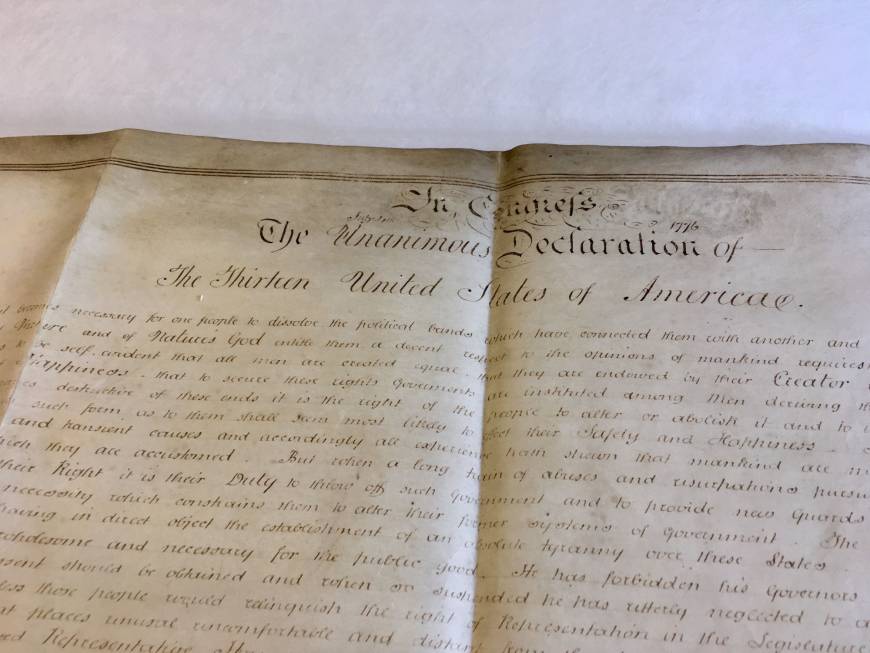 In Congress
July 4th 1776
The Unanimous Declaration of —
The Thirteen United States of America.
becomes necessary for one people to dissolve the political bands which have connected them with another and
Nature and of Natures God entitle them a decent respect to the opinions of mankind requires
to be self-evident that all men are created equal - that they are endowed by their Creator
Happiness - that to secure these rights Goverments are instituted among Men deriving
destructive of these ends it is the right of the people to alter or abolish it and to
such form, as to them shall seem most likely to effect their Safety and Happiness -
and transient causes and accordingly all experience hath shewn that mankind are
which they are accustomed. But when a long train of abuses and usurpations pursu
their Right it is their Duty to throw off such Government and to provide new Guards
necessity which constrains them to alter their former Systems of Government. The
having in direct object the establishment of an absolute tyranny over these States
wholesome and necessary for the public good. He has forbidden his Governors
should be obtained and when so suspended he has utterly neglected to
those people would relinquish the right of Representation in the Legislature
places unusual uncomfortable and distant from the
Representative